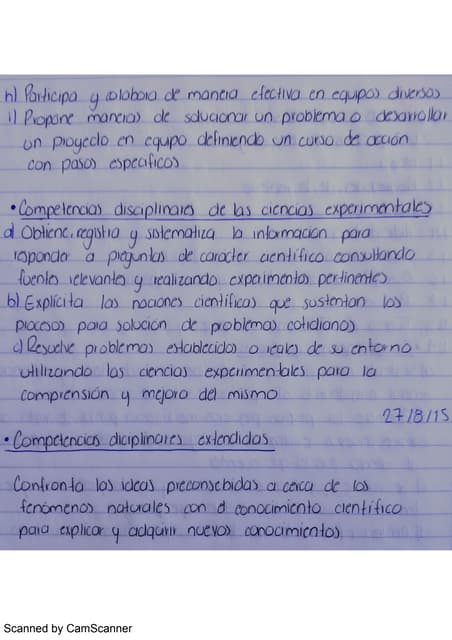 h) Participa y colabora de manera efectiva en equipos diversos
i) Propone maneras de solucionar un problema o desarrollar
un proyecto en equipo definiendo un curso de acción
con pasos especificos
• Competencias disciplinares de las ciencias experimentales
a) Obtiene, registra y sistematiza la información para
responder a preguntas de caracter científico consultando
fuentes relevantes y realizando experimentos pertinentes
b) Explícita las nociones científicas que sustentan los
procesos para solución de problemas cotidianos
c) Resuelve problemas establecidos o reales de su entorno
utilizando las ciencias experimentales para la
comprensión y mejora del mismo
27/8/15
• Competencias diciplinares extendidas
Confronta las ideas preconsebidas a cerca de los
fenómenos naturales con el conocimiento científico
para explicar y adquirir nuevos conocimientos
Scanned by CamScanner